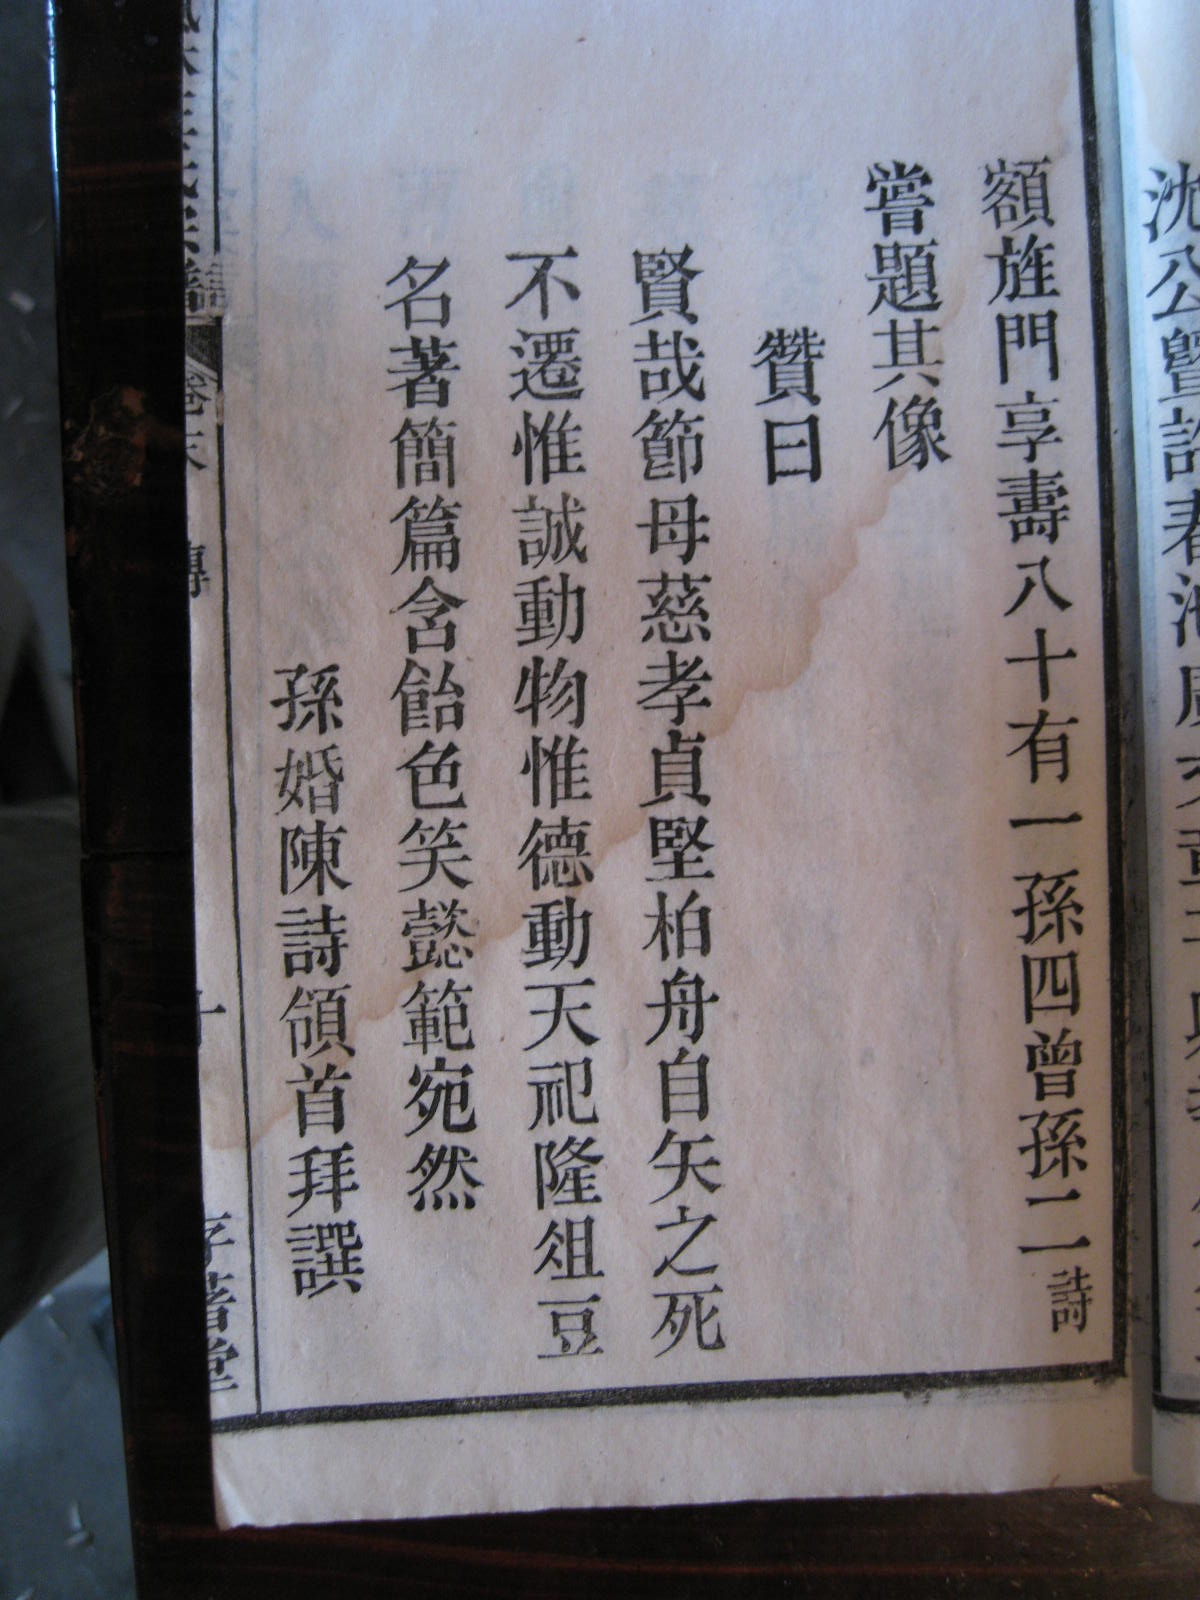 額旌門享壽八十有一孫四曾孫二詩
嘗題其像
贊曰
賢哉節母慈孝貞堅柏舟自矢之死
不遷惟誠動物惟德動天祀隆俎豆
名著簡篇含飴色笑懿範宛然
孫婚陳詩頜首拜譔
卷末
傳